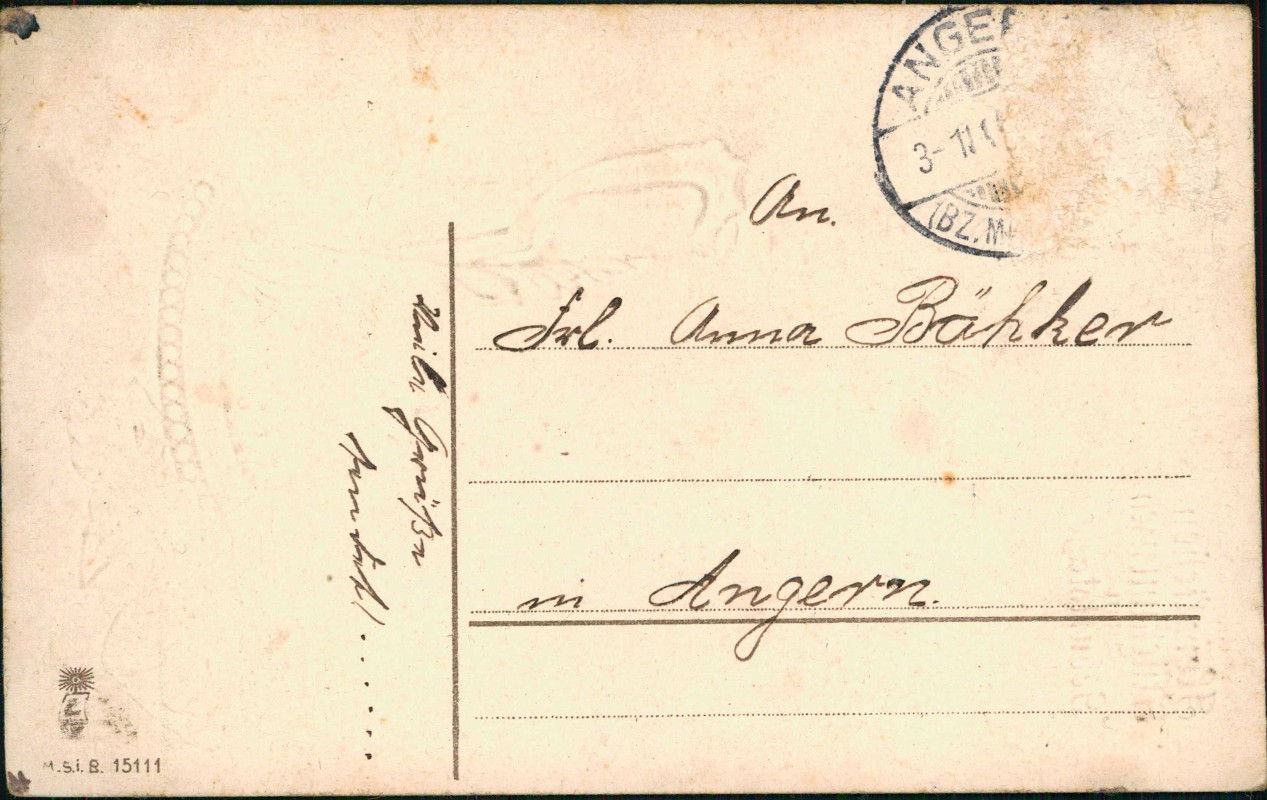 ANGER
3-11.1
(BZ. M
An.
Frl. Anna BäHker
in Angern.
Grüße
sendet!......
M.S.i.B. 15111